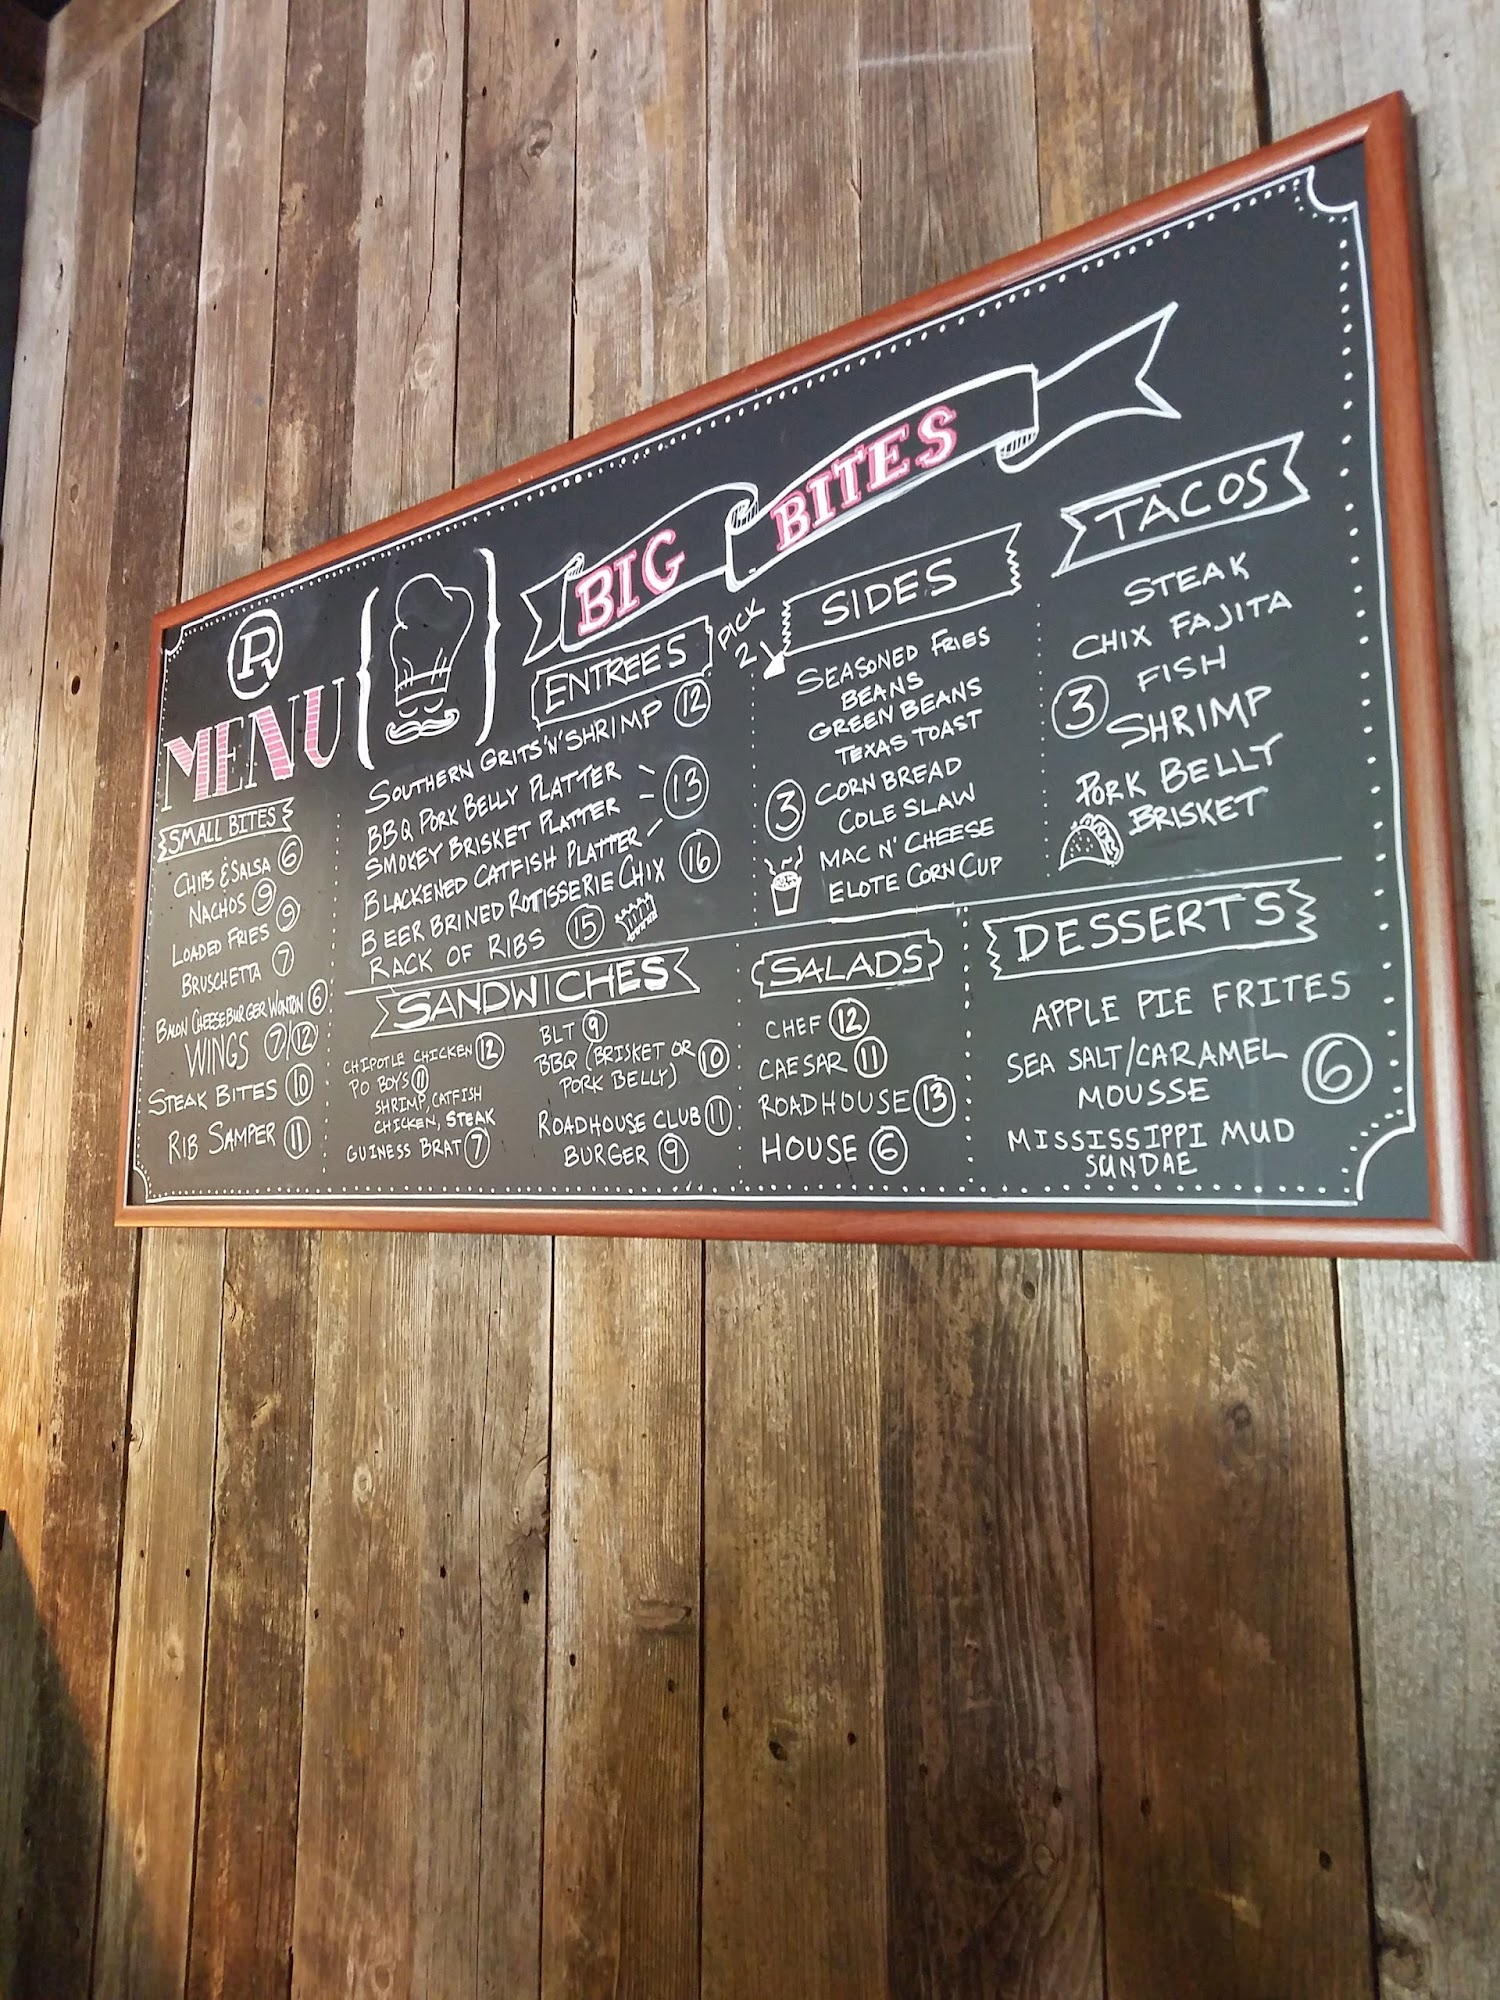 R
MENU
SMALL BITES
CHIPS & SALSA 6
NACHOS 9
LOADED FRIES 9
BRUSCHETTA 7
BACON CHEESEBURGER WONTON 6
WINGS 7/12
STEAK BITES 10
RIB SAMPER 11
BIG BITES
ENTREES
PICK
2
SOUTHERN GRITS 'N' SHRIMP 12
BBQ PORK BELLY PLATTER
SMOKEY BRISKET PLATTER 13
BLACKENED CATFISH PLATTER
BEER BRINED ROTISSERIE CHIX 16
RACK OF RIBS 15
SIDES
SEASONED FRIES
BEANS
GREEN BEANS
TEXAS TOAST
3 CORN BREAD
COLE SLAW
MAC N' CHEESE
ELOTE CORN CUP
TACOS
STEAK
CHIX FAJITA
3 FISH
SHRIMP
PORK BELLY
BRISKET
SANDWICHES
CHIPOTLE CHICKEN 12
PO BOYS 11
SHRIMP, CATFISH
CHICKEN, STEAK
GUINESS BRAT 7
BLT 9
BBQ (BRISKET OR 10
PORK BELLY)
ROADHOUSE CLUB 11
BURGER 9
SALADS
CHEF 12
CAESAR 11
ROADHOUSE 13
HOUSE 6
DESSERTS
APPLE PIE FRITES
SEA SALT/CARAMEL 6
MOUSSE
MISSISSIPPI MUD
SUNDAE